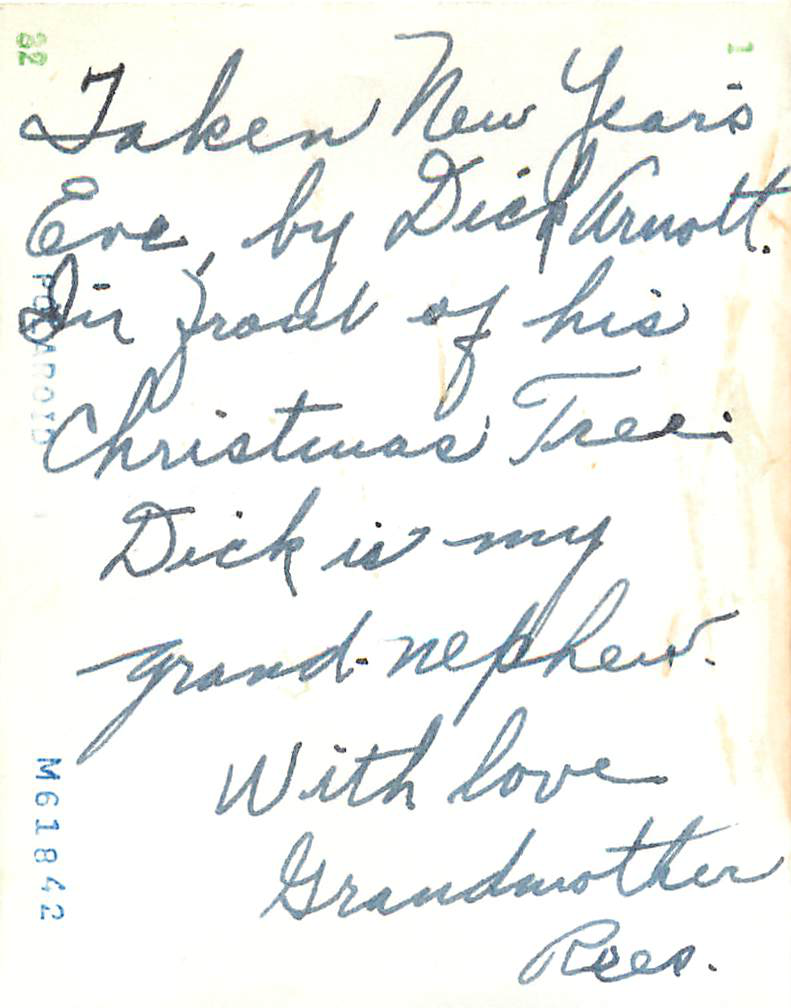 Taken New Year's
Eve, by Dick Arnott.
In front of his
Christmas Tree.
Dick is my
grand-nephew.
With love
Grandmother
Rees.
POLAROID
M61842
32
1